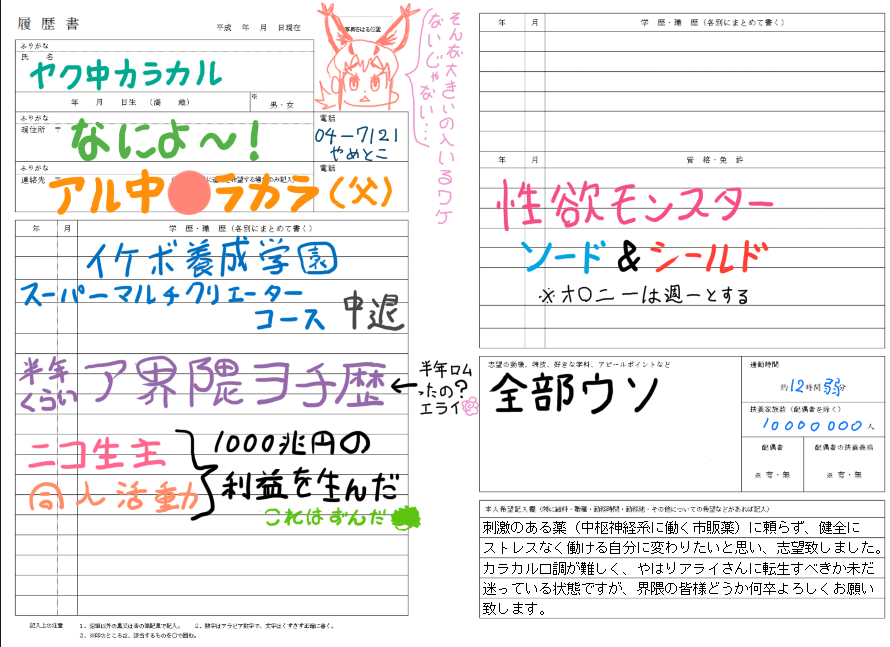 履歴書
平成 年 月 日現在
写真をはる位置
そんな大きいの入いるワケ
ないじゃない…
ふりがな
氏 名
ヤク中カラカル
年 月 日生 (満 歳)
※
男・女
ふりがな
現住所 〒
なによ〜!
電話
04-7121
やめとこ
ふりがな
連絡先 〒
アル中●ラカラ(父)
電話
年 月 学 歴・職 歴 (各別にまとめて書く)
イケボ養成学園
スーパーマルチクリエーター
コース 中退
半年
くらい
ア界隈ヨ子歴
←半年ロム
ったの?
エライ
ニコ生主
同人活動
1000兆円の
利益を生んだ
これはずんだ
記入上の注意 1.鉛筆以外の黒又は青の筆記具で記入。 2.数字はアラビア数字で、文字はくずさず正確に書く。
3.※印のところは、該当するものを○で囲む。
年 月 学 歴・職 歴 (各別にまとめて書く)
年 月 資 格・免 許
性欲モンスター
ソード&シールド
※オ〇ニーは週一とする
志望の動機、特技、好きな学科、アピールポイントなど
全部ウソ
通勤時間
約12時間弱分
扶養家族数(配偶者を除く)
10000000人
配偶者
※ 有・無
配偶者の扶養義務
※ 有・無
本人希望記入欄(特に給料・職種・勤務時間・勤務地・その他についての希望などがあれば記入)
刺激のある薬(中枢神経系に働く市販薬)に頼らず、健全に
ストレスなく働ける自分に変わりたいと思い、志望致しました。
カラカル口調が難しく、やはりアライさんに転生すべきか未だ
迷っている状態ですが、界隈の皆様どうか何卒よろしくお願い
致します。